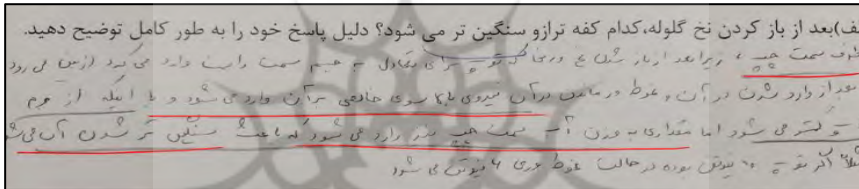 لف)بعد از باز کردن نخ گلوله،کدام کفه ترازو سنگین تر می شود؟ دلیل پاسخ خود را به طور کامل توضیح دهید.
ظرف سمت چپ، زیرا بعد از باز شدن نخ وزنی که توپ برای تعادل به جسم سمت راست وارد می کرد از بین می رود
بعد از وارد شدن در آن و غوطه ور ماندن در آن نیروی بالا سوی خالصی بر آن وارد می شود و با اینکه از جرم
توپ کمتر می شود اما مقداری به وزن آب سمت چپ نیز وارد می شود که باعث سنگین تر شدن آن می ش
مثلا اگر توپ ۱۰ نیوتن بوده در حالت غوطه وری ۶ نیوتن می شود